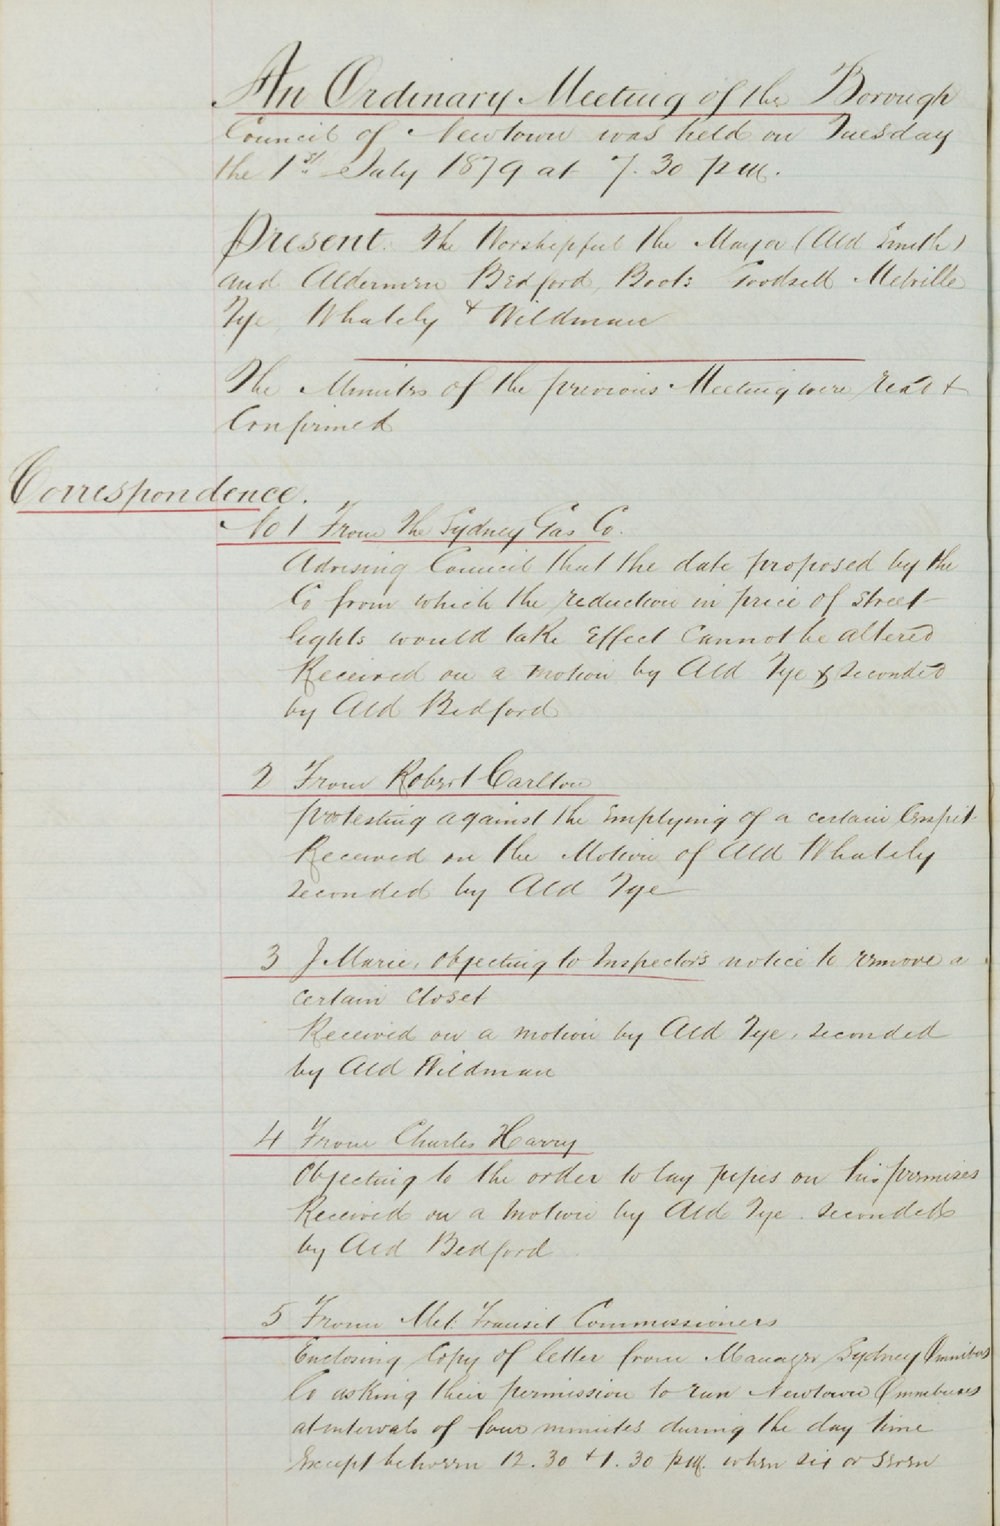 An Ordinary Meeting of the Borough
Council of Newtown was held on Tuesday
the 1st July 1879 at 7.30 pm.
Present. The Worshipful the Mayor (Ald Smith)
and Aldermen Bedford, Boots Goodsell Melville
Tye, Whately & Wildman
The Minutes of the previous Meeting were read &
Confirmed
Correspondence.
No 1 From The Sydney Gas Co.
Advising Council that the date proposed by the
Co from which the reduction in price of street
lights would take Effect Cannot be altered
Received on a motion by Ald Tye & seconded
by Ald Bedford
2 From Robert Carlton
protesting against the Emptying of a certain Cesspit
Received on the Motion of Ald Whately
seconded by Ald Tye
3 J Marie, Objecting to Inspectors notice to remove a
certain Closet
Received on a motion by Ald Tye, seconded
by Ald Wildman
4 From Charles Harry
Objecting to the order to lay pipes on his premises
Received on a Motion by Ald Tye. seconded
by Ald Bedford
5 From Met. Transit Commissioners
Enclosing Copy of letter from Manager Sydney Omnibus
Co asking their permission to run Newtown Omnibuses
at intervals of four minutes during the day time
Except between 12.30 & 1.30 pm. when six or seven